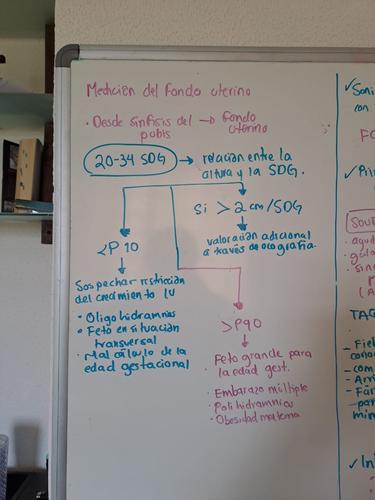 Medición del fondo uterino
• Desde sínfisis del → fondo
pubis uterino
20-34 SDG → relación entre la
altura y la SDG.
Si > 2 cm/SDG
↓
valoración adicional
a través de ecografía.
<P10
↓
Sospechar restricción
del crecimiento IU
• Oligohidramnios
• Feto en situación
transversal
• Mal cálculo de la
edad gestacional
>P90
↓
Feto grande para
la edad gest.
• Embarazo múltiple
• Polihidramnios
• Obesidad materna
✓ Soni
con
FC
✓
SOU
• agud
• 
• sinc
(A
TAG
- Fie
- com
- Arr
- Fár
par
min
✓ In